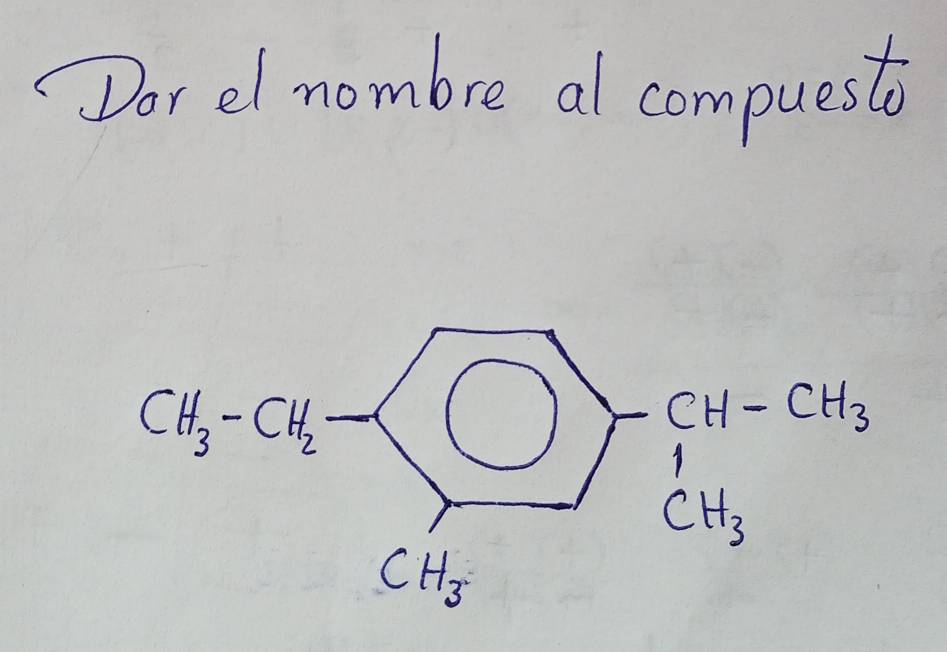 Dar el nombre al compuesto
CH₃-CH₂ CH-CH₃
CH₃
CH₃